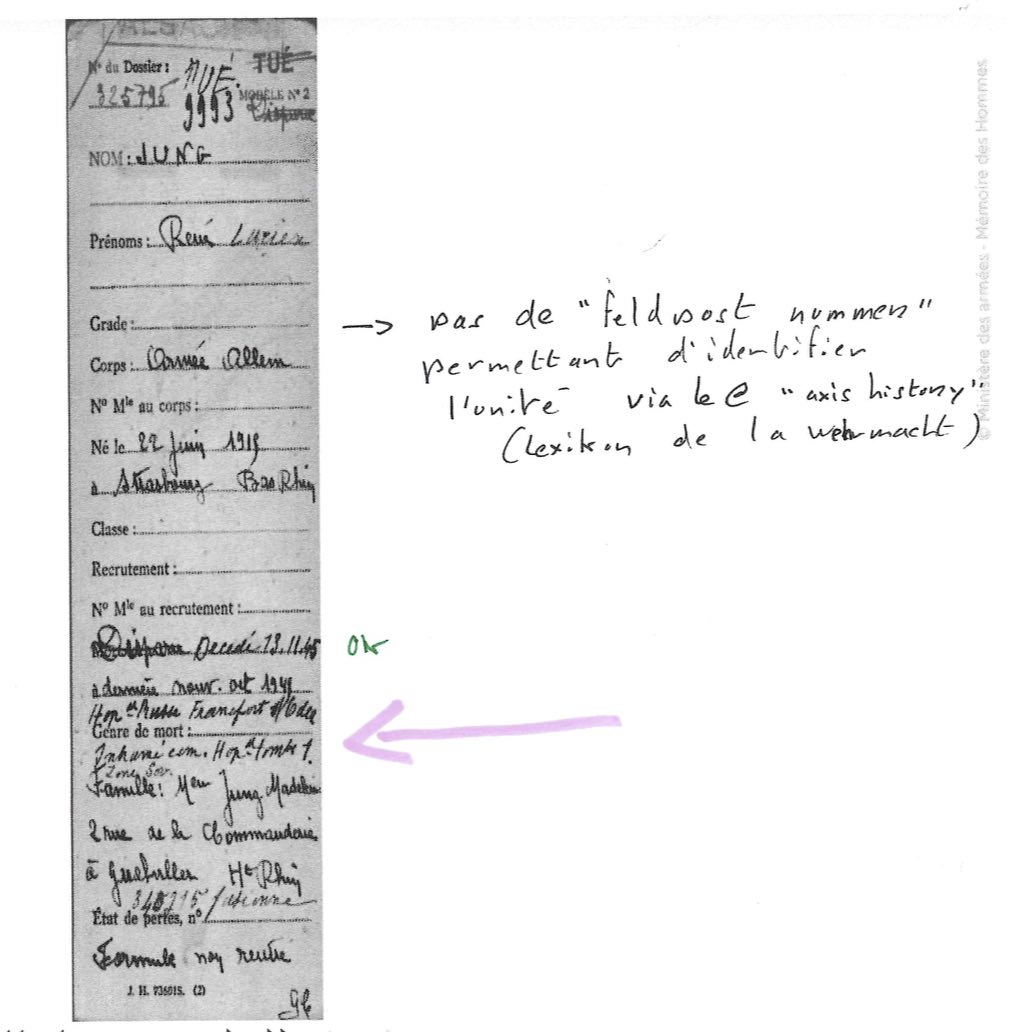 ALSAC
N° du Dossier : TUÉ
325795 9993 MODÈLE N° 2
NOM : JUNG
Prénoms : René Lucien
Grade :
Corps : Armée Allem
N° Mle au corps :
Né le 22 Juin 1919
à Strasbourg Bas Rhin
Classe :
Recrutement :
N° Mle au recrutement :
Disparu Decedé 13.11.45
à dernière nouv. oct 1941
Hop. al Russe Francfort s/Oder
Genre de mort :
Inhumé cim. Hop. al tombe 1.
Zone Sov.
Famille : Jung Madeleine
2 rue de la Commanderie
à Guebviller Ht Rhin
État de pertes, n°
Formule nay rentré
J. H. 736015. (2)
→ pas de "feldpost nummer"
permettant d'identifier
l'unité via le @ "axis history"
(lexikon de la wehrmacht)
OK
© Ministère des armées - Mémoire des Hommes